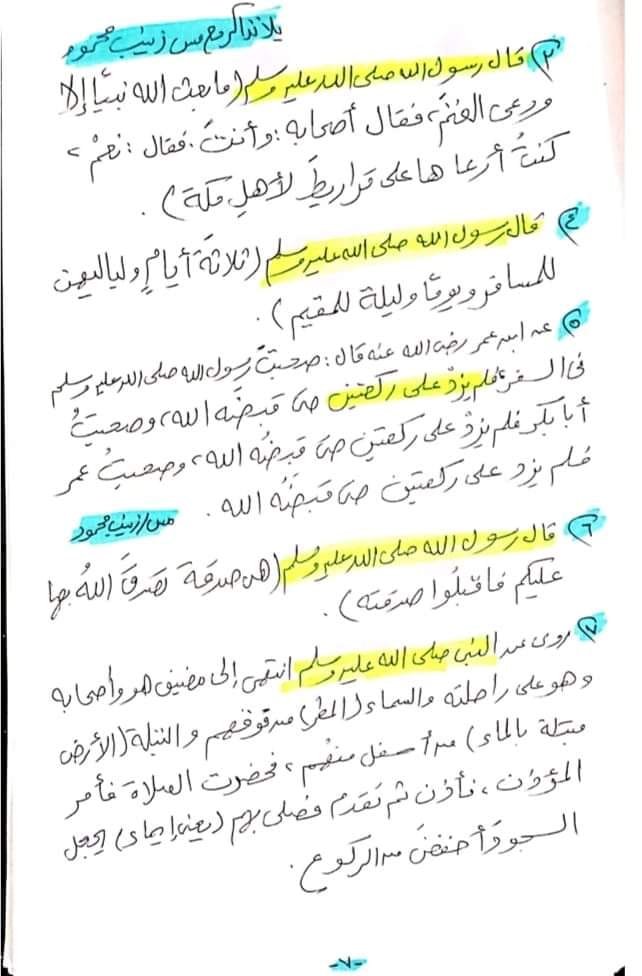 يلا نذاكر مع مس زينب محمود
٣) قال رسول الله صلى الله عليه وسلم (ما بعث الله نبيًا إلا
ورعى الغنم، فقال أصحابه: وأنتَ. فقال: نعمْ،
كنتُ أرعاها على قراريطَ لأهلِ مكة).
٤) قال رسول الله صلى الله عليه وسلم (ثلاثةَ أيامٍ ولياليهن
للمسافر ويومًا وليلة للمقيم).
٥) عن ابن عمر رضى الله عنه قال: صحبتُ رسول الله صلى الله عليه وسلم
فى السفر، فلم يزدْ على ركعتين حتى قبضَه الله، وصحبتُ
أبا بكر فلم يزدْ على ركعتين حتى قبضهُ الله، وصحبتُ عمر
فلم يزد على ركعتين حتى قبضَهُ الله.
مس/زينب محمود
٦) قال رسول الله صلى الله عليه وسلم (هى صدقة تصدقَ اللهُ بها
عليكم فاقبلُوا صدقته).
٧) روى عن النبى صلى الله عليه وسلم انتهى إلى مضيق هو وأصحابه
وهو على راحلته والسماء (المطر) من فوقهم والبلة (الأرض
مبتلة بالماء) من أسفل منهم، فحضرت الصلاة فأمر
المؤذن، فأذن ثم تقدم فصلى بهم (يعنى إيماء) يجعل
السجود أخفضَ من الركوع.
-٧-